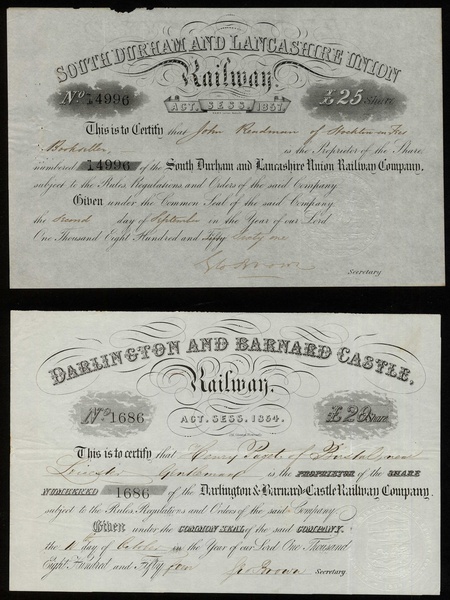 SOUTH DURHAM AND LANCASHIRE UNION
Railway.
No. 14996
ACT. SESS. 1857.
£25 Share
This is to Certify that John Readman of Stockton on Tees
Bookseller is the Proprietor of the Share
numbered 14996 of the South Durham and Lancashire Union Railway Company,
subject to the Rules, Regulations and Orders of the said Company.
Given under the Common Seal of the said Company,
the second day of September in the Year of our Lord
One Thousand Eight Hundred and Fifty Sixty one
Geo Brown
Secretary.
DARLINGTON AND BARNARD CASTLE,
Railway.
No. 1686
ACT. SESS. 1854.
Share
This is to certify that Henry Paget of
Leicester Gentleman is the PROPRIETOR of the SHARE
NUMBERED 1686 of the Darlington & Barnard-Castle Railway Company.
subject to the Rules, Regulations and Orders of the said Company.
Given under the COMMON SEAL of the said COMPANY.
the day of October in the Year of our Lord One Thousand
Eight Hundred and Fifty four Geo Brown Secretary.